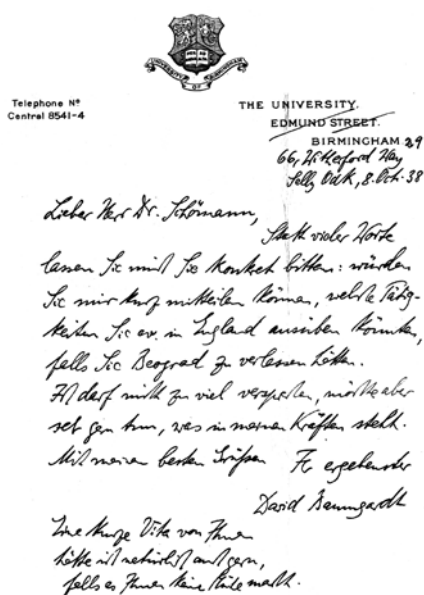 UNIVERSITY OF BIRMINGHAM
Telephone Nº
Central 8541-4
THE UNIVERSITY.
EDMUND STREET.
BIRMINGHAM 29
66, Witherford Way
Selly Oak, 8. Oct. 38
Lieber Herr Dr. Schömann,
Statt vieler Worte
lassen Sie mich Sie konkret bitten: würden
Sie mir kurz mitteilen können, welche Tätig-
keiten Sie ev. in England ausüben könnten,
falls Sie Beograd zu verlassen hätten.
Ich darf nicht zu viel versprechen, möchte aber
sehr gern tun, was in meinen Kräften steht.
Mit meinen besten Grüßen Ihr ergebenster
David Baumgardt
Eine kurze Vita von Ihnen
hätte ich natürlich auch gern,
falls es Ihnen keine Mühe macht.